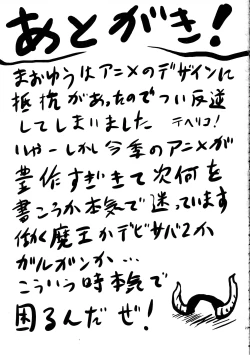 あとがき！
まおゆうはアニメのデザインに
抵抗があったのでつい反逆
してしまいました テヘペロ！
いやーしかし今季のアニメが
豊作すぎて次何を
書こうか本気で迷っています
働く魔王かデビサバ2か
ガルガンか…
こういう時本気で
困るんだぜ！